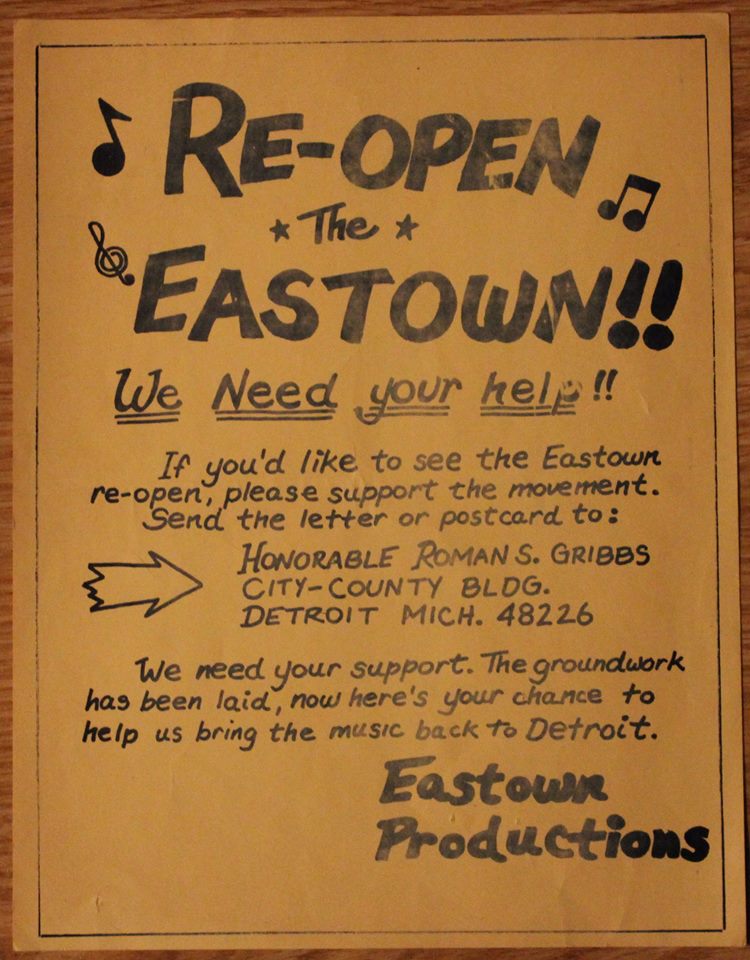 RE-OPEN
The
EASTOWN!!
We Need your help!!
If you'd like to see the Eastown
re-open, please support the movement.
Send the letter or postcard to:
HONORABLE ROMAN S. GRIBBS
CITY-COUNTY BLDG.
DETROIT MICH. 48226
We need your support. The groundwork
has been laid, now here's your chance to
help us bring the music back to Detroit.
Eastown
Productions